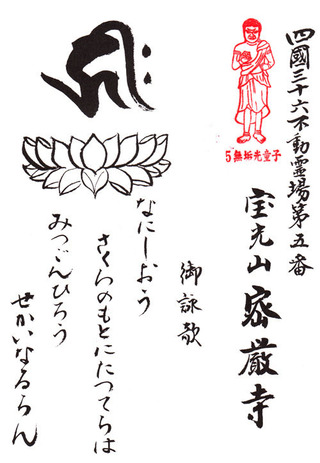 四國三十六不動霊場第五番
宝光山 密厳寺
5無垢光童子
御詠歌
なにしおう
さくらのもとにたつてらは
みつごんひろう
せかいなるらん